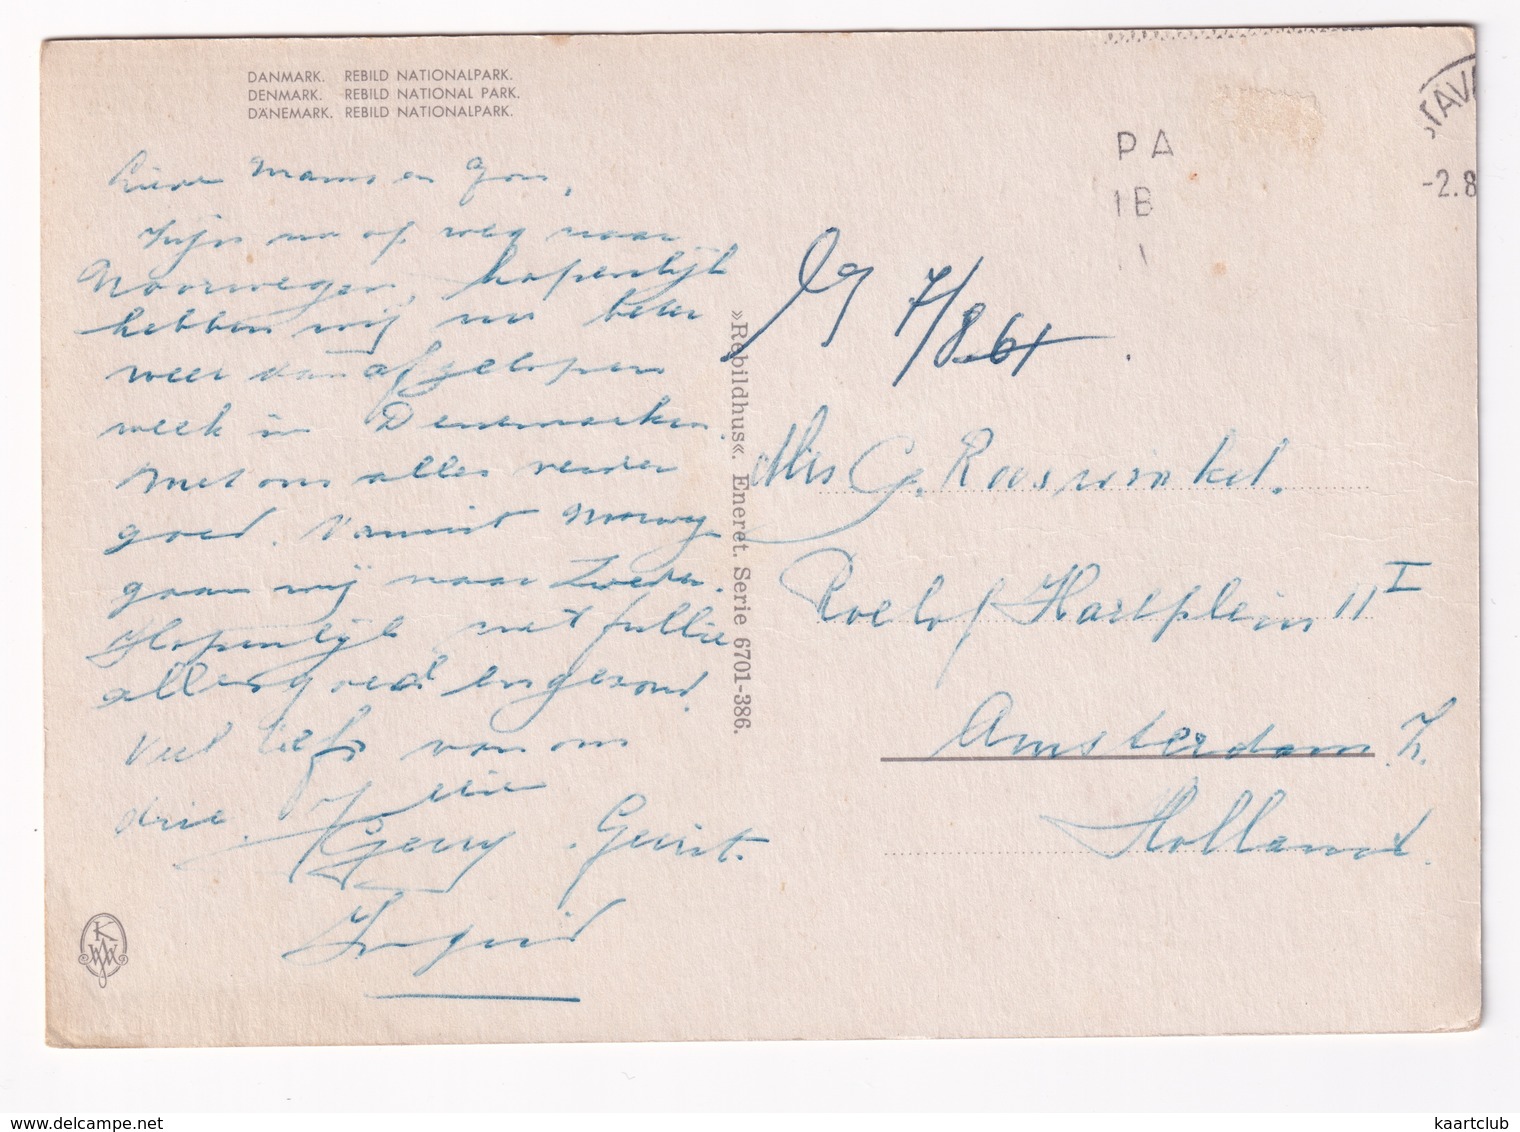 DANMARK. REBILD NATIONALPARK.
DENMARK. REBILD NATIONAL PARK.
DÄNEMARK. REBILD NATIONALPARK.
Lieve Mams en Gon,
Zijn nu op weg naar
Noorwegen, hopenlijk
hebben wij nu beter
weer dan afgelopen
week in Denemarken.
Met ons alles verder
goed. Vanuit Noorwg.
gaan wij naar Zweden.
Hopenlijk met jullie
alles goed en gezond.
Veel liefs van ons
drie
Gerry. Gerrit.
Ingrid
»Rebildhus«. Eneret. Serie 6701-386.
PA
1B
STAVA
-2.8
7/8.61.
Mrs G. Rooswinkel.
Roelof Hartplein 11 I
Amsterdam. Z.
Holland.
delcampe.net
kaartclub